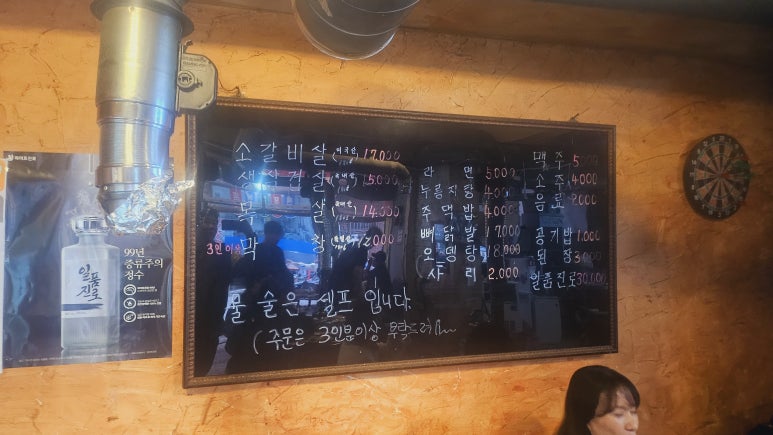 소갈비살 (미국산) 17,000
생삼겹살 (국내산) 15,000
목살 (국내산) 14,000
3인이상 막창 12,000
라면 5,000
누룽지탕 4,000
주먹밥 4,000
뼈닭발 17,000
오뎅탕 18,000
사리 2,000
맥주 5,000
소주 4,000
음료 2,000
공기밥 1,000
된장 3,000
일품진로 30,000
물.술은 셀프입니다.
(주문은 3인분이상 부탁드려요
99년
증류주의
정수
일품
진로